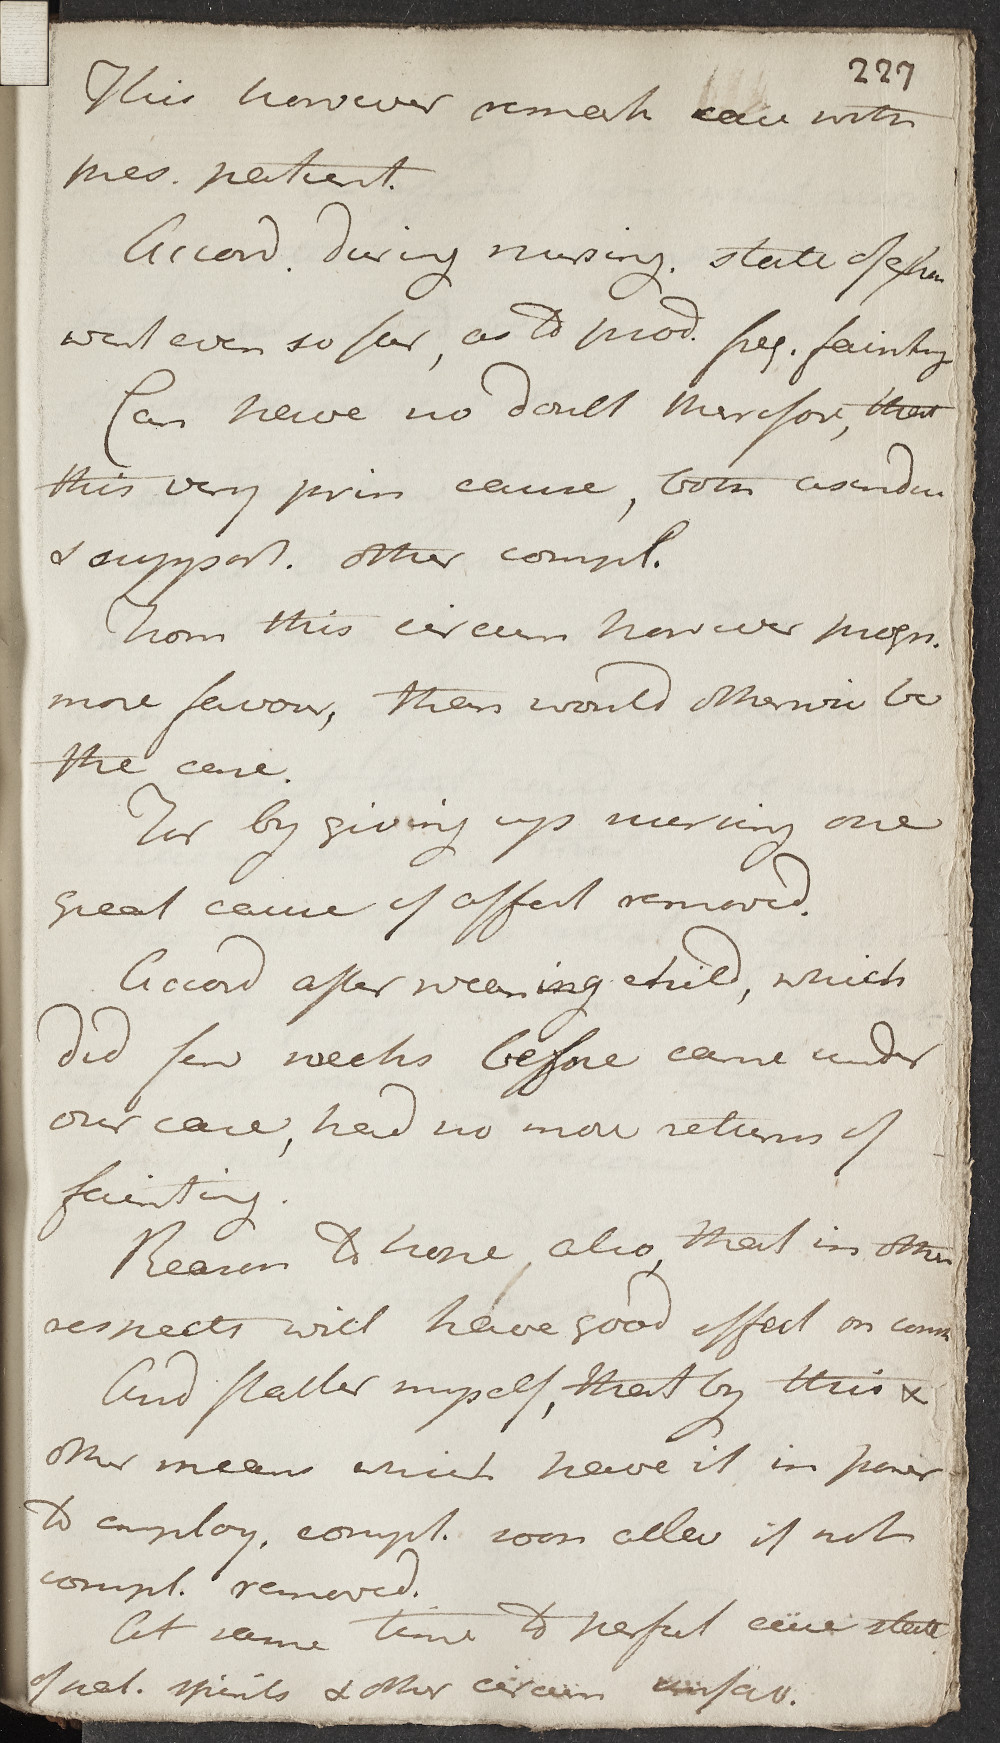 227
This however remark. case with
pres. patient.
Accord. during nursing. state of
went even so far, as to prod. freq. fainting
Can have no doubt therefore, that
this very prin cause, both
& support. other compl.
From this circum however progn.
more favour, than would otherwise be
the case.
For by giving up nursing one
great cause of affect removed.
Accord after weaning child, which
did few weeks before came under
our care, had no more returns of
fainting.
Reason to hope also, that in other
respects will have good effect on
And flatter myself, that by this &
other means which have it in power
to employ, compl. soon allev if not
compl. removed.
At same time to perfect cure state
of pat. spirits & other circum unfav.